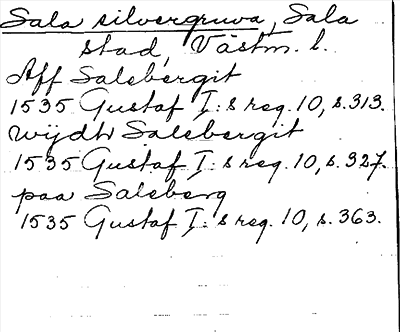 Sala silvergruva, Sala
stad, Västm. l.
Aff Salebergit
1535 Gustaf I:s reg. 10, s. 313.
wijdh Salebergit
1535 Gustaf I:s reg. 10, s. 327.
paa Saleberg
1535 Gustaf I:s reg. 10, s. 363.